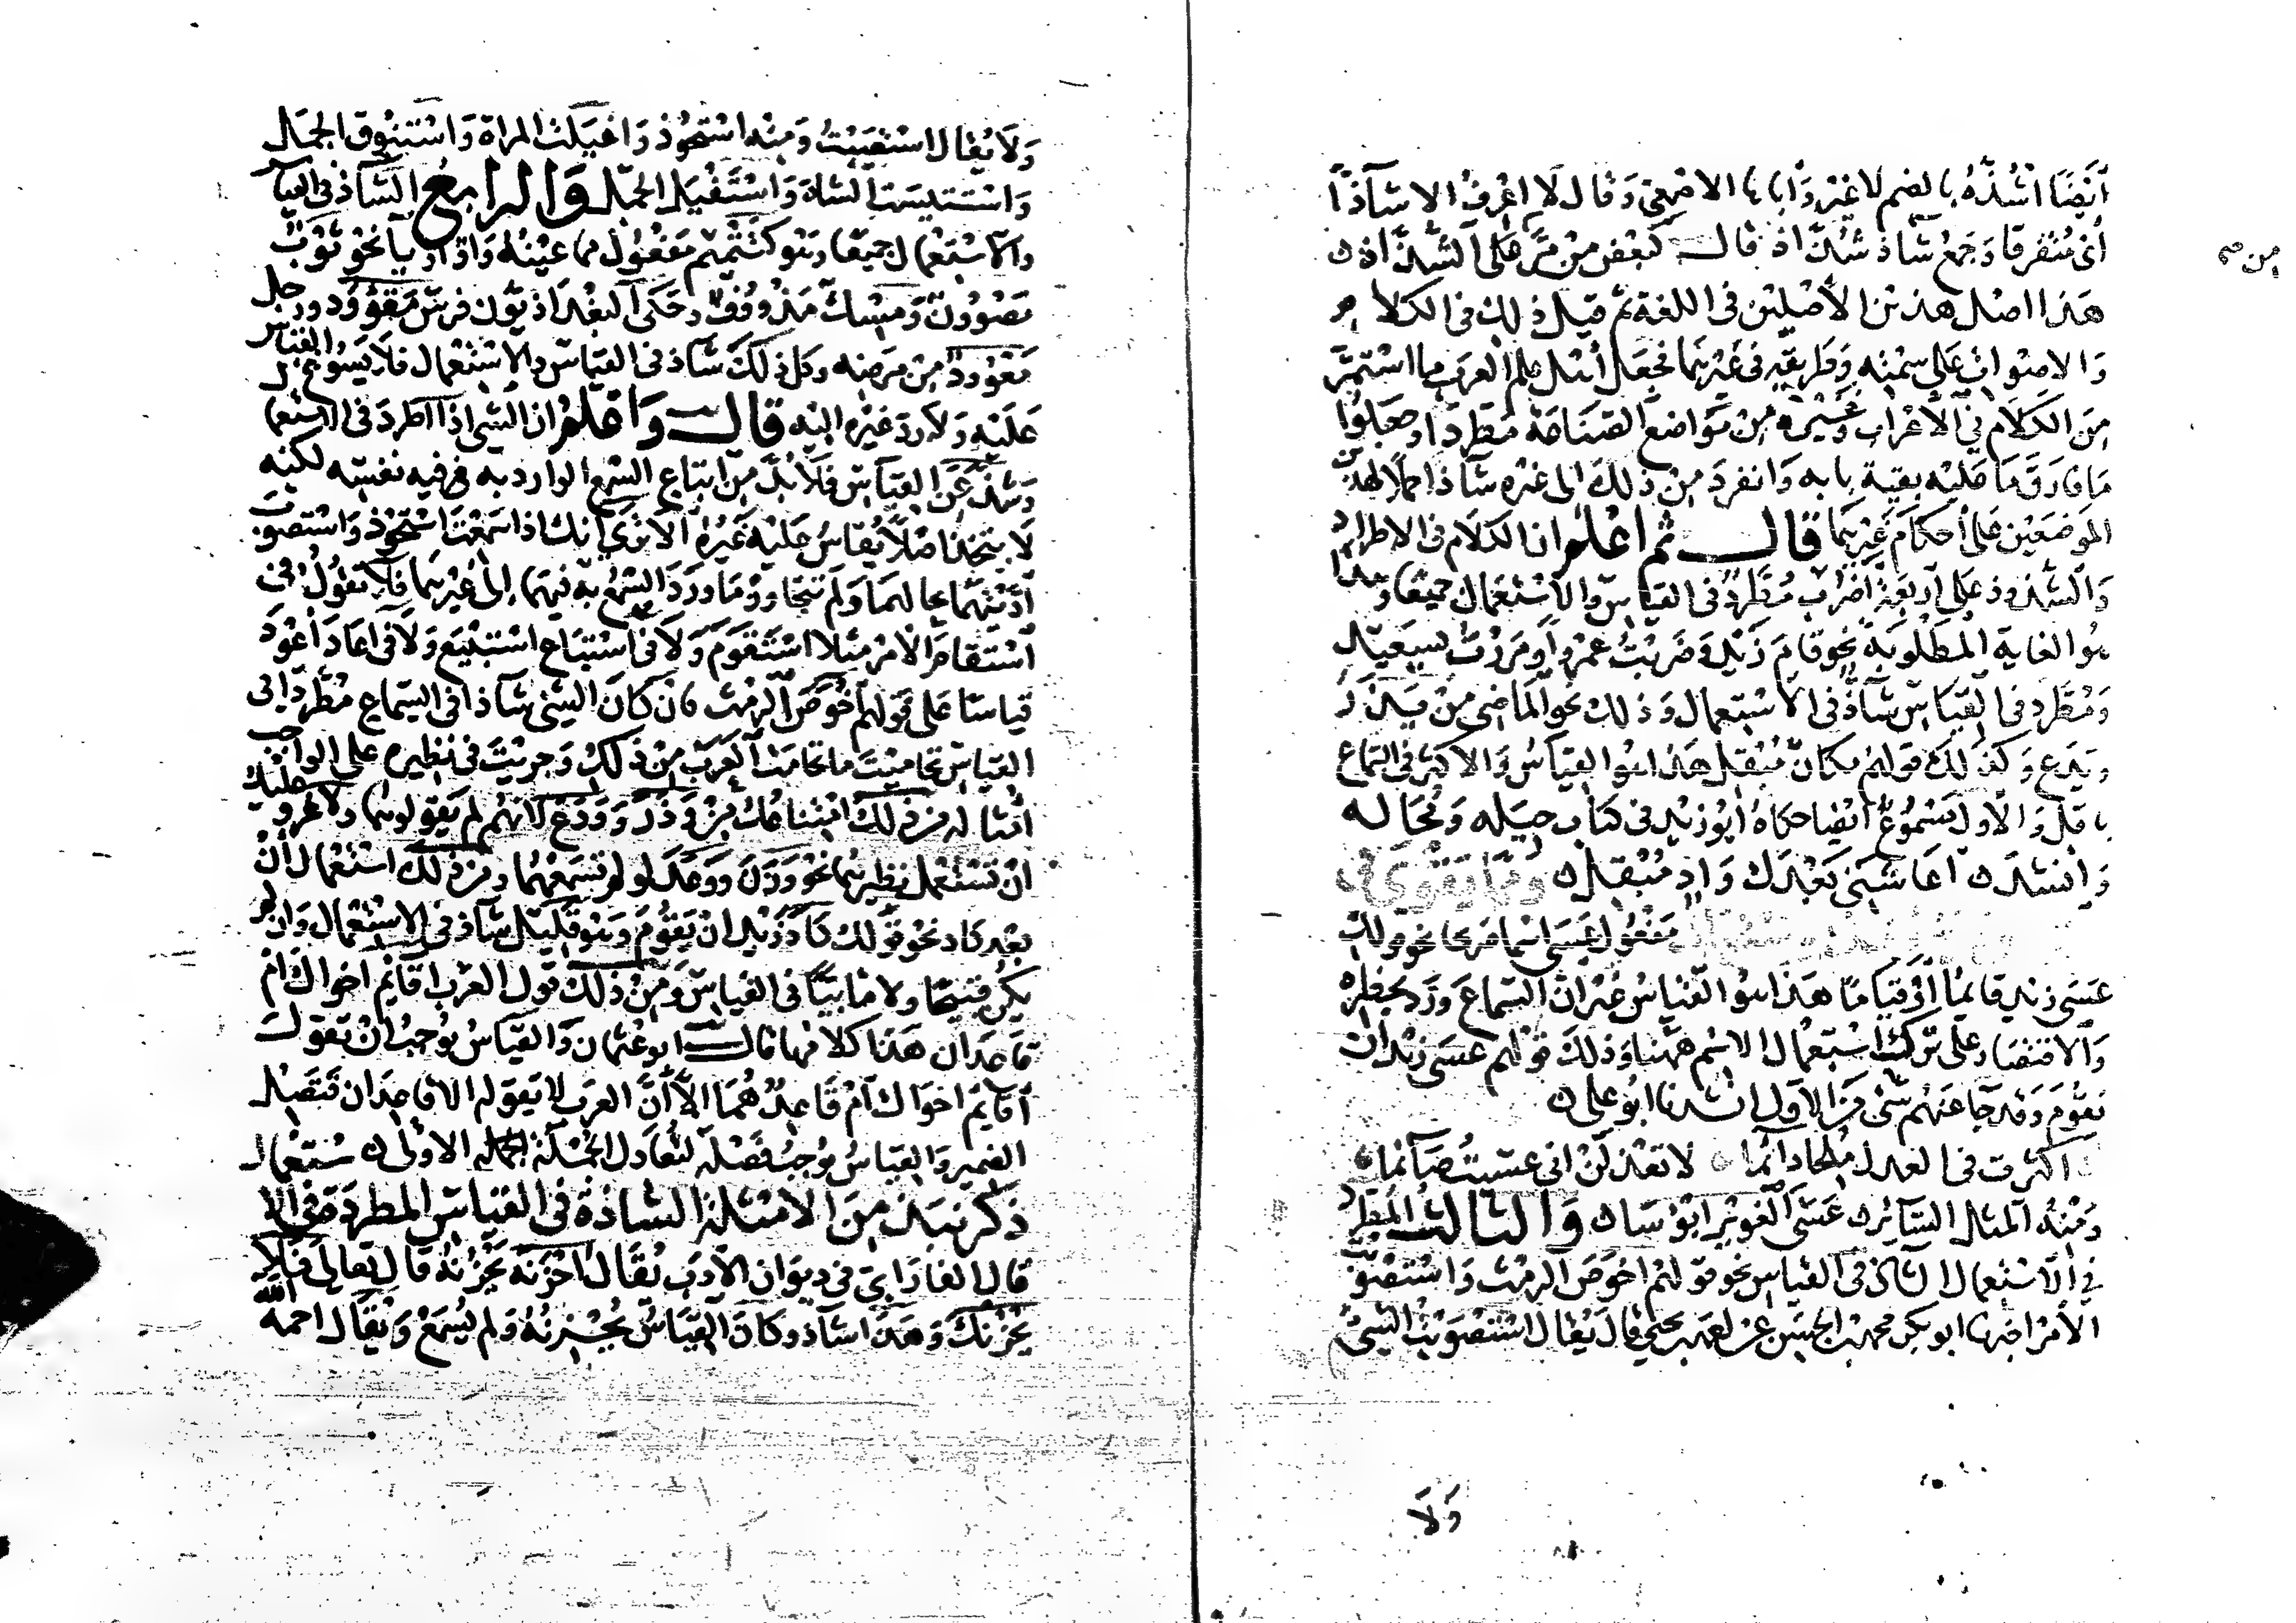 أيضًا أشُذُّهُ بالضم لا غير وأباها الأصمعي وقال لا أعرف إلا شاذًا
أي متفرقا وجمع شاذ شُذّاذ قال كبعض من مرّ على الشذّاذ
من صح
هذا أصل هذين الأصلين في اللغة ثم قيل ذلك في الكلام
والأصوات على سمته وطريقه في غيرهما فجعل أهل علم العرب ما استمرّ
من الكلام في الأعراب وغيره من مواضع الصناعة مطردا وجعلوا
ما فارق ما عليه بقية بابه وانفرد من ذلك إلى غيره شاذا حملا لهذين
الموضعين على أحكام غيرهما قال ثم اعلم ان الكلام في الاطراد
والشذوذ على أربعة أضرب مُطَّرد في القياس والاستعمال جميعا وهذا
هو الغاية المطلوبة نحو قام زيد وضربت عمروا ومررت بسعيد
ومُطَّرد في القياس شاذٌّ في الاستعمال وذلك نحو الماضي من يذر
ويدع وكذلك قولهم مكان مُبْقِل هذا هو القياس والأكثر في السماع
باقل والأول مسموع أيضا حكاه أبو زيد في كتاب حيله ومحاله
وانشد أعاشني بعدك واد مبقل ومما يقوى في
مفعول عسى اسما صريحا نحو قولك
عسى زيد قائمًا أو قيامًا هذا هو القياس غير ان السماع ورد بحظره
والاقتصار على ترك استعمال الاسم ههنا وذلك قولهم عسى زيد ان
يقوم وقد جاء عنهم شئ من الأول انشدنا ابو على
أكثرت في العذل مُلِحّا دائما لا تعذلن انى عسيت صائما
ومنه المثل السائر عسى الغوير ابؤسا والثالث المطرد
في الاستعمال الشاذ في القياس نحو قولهم أخوص الرمث واستصوبت
الأمر اخبرنا ابو بكر محمد بن الحسن عن احمد بن يحيى قال يقال استصوبت الشئ
وَلَا
ولا يقال استصبت ومنه استحوذ واغيلت المراة واستنوق الجمل
واستتيست الشاة واستفيل الجمل والرابع الشاذ في القياس
والاستعمال جميعا وهو كتتميم مفعول مما عينه واو أو يا نحو ثوب
مصوون ومسك مذووف وحكى البغداذيون فرس مقوود ورجل
معوود من مرضه وكل ذلك شاذ في القياس والاستعمال فلا يسوغ القياس
عليه ولا رد غيره اليه قال واعلم ان الشئ اذا اطرد في الاستعمال
وشذ عن القياس فلا بد من اتباع السمع الوارد به فيه نفسه لكنه
لا يتخذ اصلا يقاس عليه غيره الا ترى انك اذا سمعت استحوذ واستصوب
أدّيتهما بحالهما ولم تتجاوز ما ورد السمع به فيهما إلى غيرهما فلا تقول في
استقام الأمر مثلا استقوم ولا في استباع استبيع ولا في أعاد أعود
قياسًا على قولهم أخوص الرمث فان كان الشئ شاذا في السماع مطردا في
القياس تحاميت ما تحامت العرب من ذلك وجريت في نظيره على الواجب
في أمثاله من ذلك امتناعك من وذر وودع لانهم لم يقولوهما ولا غرو عليك
ان تستعمل نظيرهما نحو وزن ووعد لو لم تسمعهما ومن ذلك استعمال أن
بعد كاد نحو قولك كاد زيد ان يقوم وهو قليل شاذ في الاستعمال وان لم
يكن قبيحًا ولا مأبيًّا في القياس ومن ذلك قول العرب اقائم اخواك ام
قاعدان هذا كلامها قال ابو عثمان والقياس يوجب ان تقول
أقائم اخواك أم قاعد هما إلا أن العرب لا تقوله الا قاعدان فتصل
الضمير والقياس يوجب فصله لتعادل الجملة الجملة الأولى
ذكر نبذ من الأمثلة الشاذة في القياس المطردة في الاستعمال
قال الفارابي في ديوان الأدب يقال أحزنه يَحْزُنُه قال تعالى فلا
يحزنك وهذا شاذ وكان القياس يُحْزِنُه ولم يُسمع ويقال أحمه الله